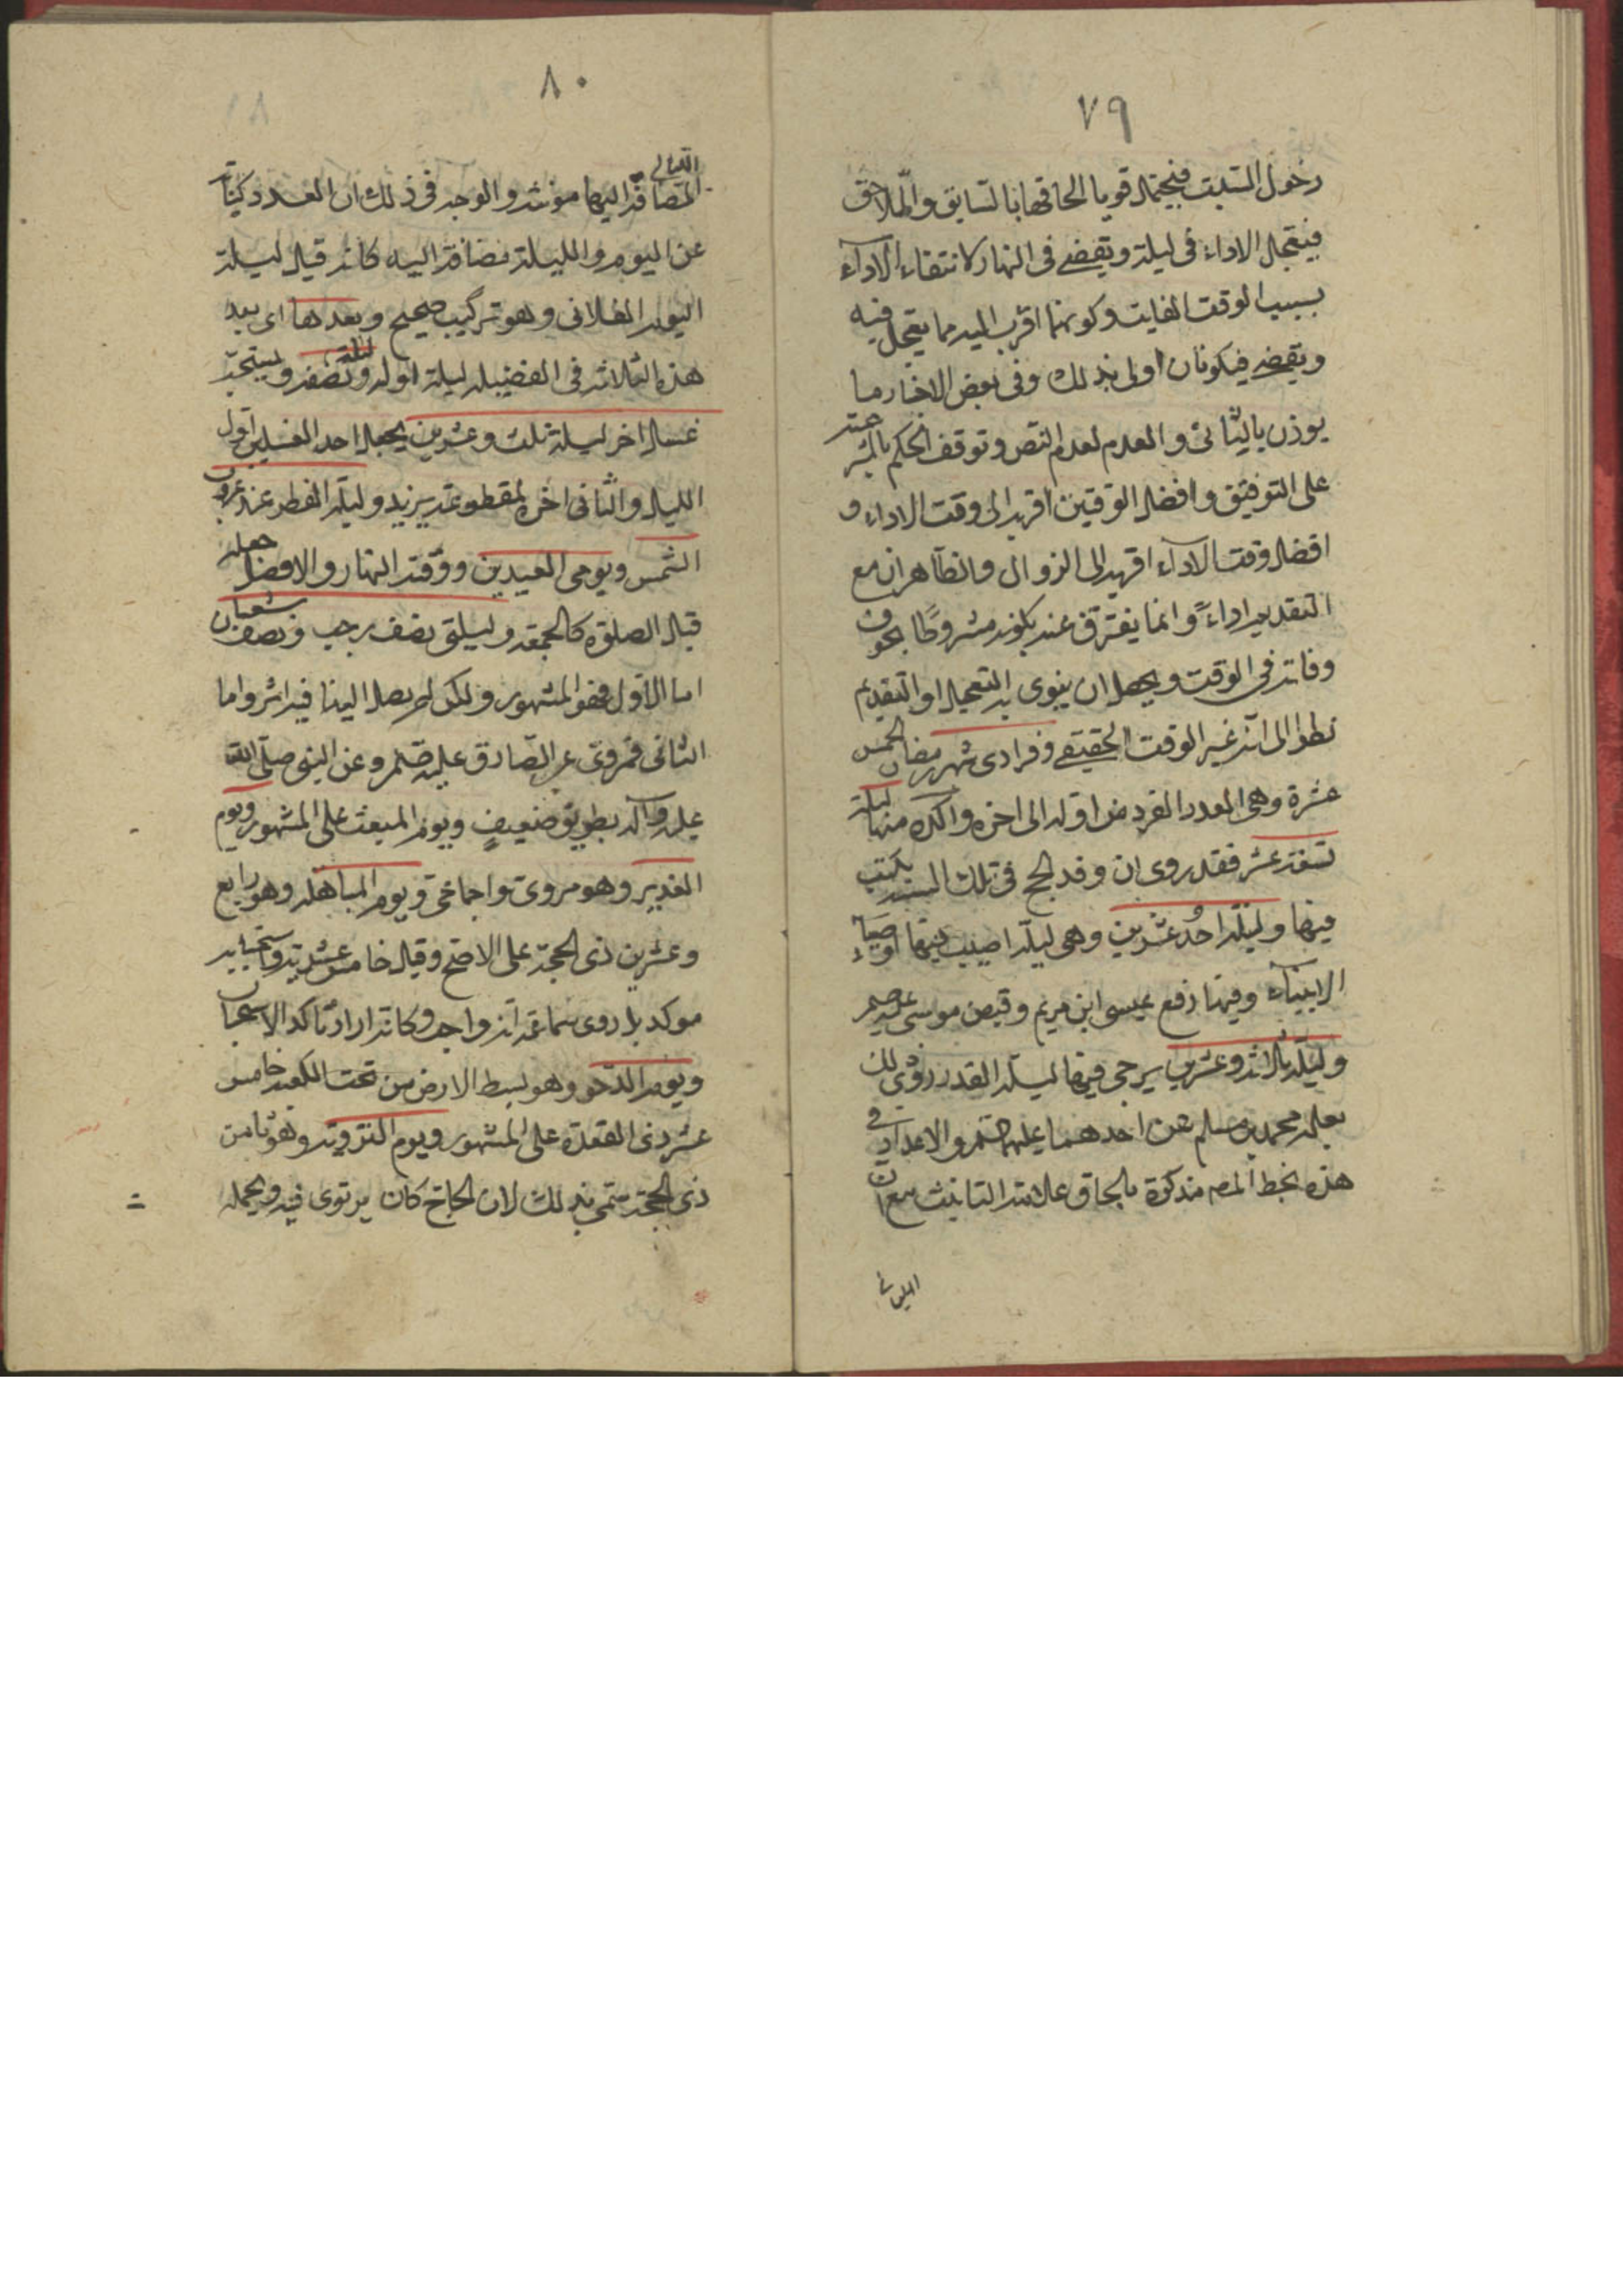 ٧٩
دخول السبت فيحتمل قويا الحاقها بالسابق واللاحق
فيتعجل الاداء فى ليلة ويقضے فى النهار لانتفاء الاداء
بسبب الوقت الفايت وكونهما اقرب اليه مما يعجل فيه
ويقضے فيكونان اولى بذلك وفى بعض الاخبار ما
يوذن بالثانى والعدم لعدم النص وتوقف الحكم بالشرعية
على التوفيق وافضل الوقتين اقربه الى وقت الاداء و
افضل وقت الاداء اقربه الى الزوال والظاهر ان مع
التقديم اداءً وانما يفترق عنه بكونه مشروطًا بخوف
وفاته فى الوقت ويحصل ان ينوى به التعجيل او التقديم
نظرا الى انه غير الوقت الحقيقے وفرادى شهر رمضان الخمس
عشرة وهى العدد الفرد من اوله الى اخره واكده منها ليلة
تسعة عشر فقد روى ان وفد الحج فى تلك السنة يكتب
فيها وليلة احد عشرين وهى ليلة اصيب فيها اوصياء
الانبياء وفيها رفع عيسى ابن مريم وقبض موسى عليه
وليلة ثلاثة وعشرين يرجى فيها ليلة القدر روى ذلك
محمد بن مسلم عن احدهما عليهما والاعداد فى
هذه بخط المص مذكرة بالحاق علامة التانيث مع ان
الليالى
٨٠
الليالى
المضافة اليها مونثة والوجه فى ذلك ان العدد كناية
عن اليوم والليلة مضافة اليه كانه قيل ليلة
اليوم الفلانى وهو تركيب صحيح وبعدها اى بعد
هذه الثلاثة فى الفضيلة ليلة اوله ونصفه ويستحب
غسل اخر ليلة ثلث وعشرين يجعل احد الغسلين اول
الليل والثانى اخره لمقطوعة بريد وليلة الفطر عند غروب
الشمس ويومى العيدين ووقته النهار والافضل جعله
قبل الصلوة كالجمعة وليلتى نصف رجب ونصف شعبان
اما الاول فهو المشهور ولكن لم يصل الينا فيه اثر واما
الثانى فمروى عن الصادق عليه وعن النبى صلى الله
عليه وآله بطريق ضعيف ويوم المبعث على المشهور ويوم
الغدير وهو مروى واجماعى ويوم المباهلة وهو رابع
وعشرين ذى الحجة على الاصح وقيل خامس عشريه واستحبابه
موكد بل روى سماعة انه واجب وكانه اراد تاكد الاستحباب
ويوم الدحو وهو بسط الارض من تحت الكعبة خامس
عشر ذى القعدة على المشهور ويوم التروية وهو ثامن
ذى الحجة سمى بذلك لان الحاج كان يرتوى فيه ويحمله